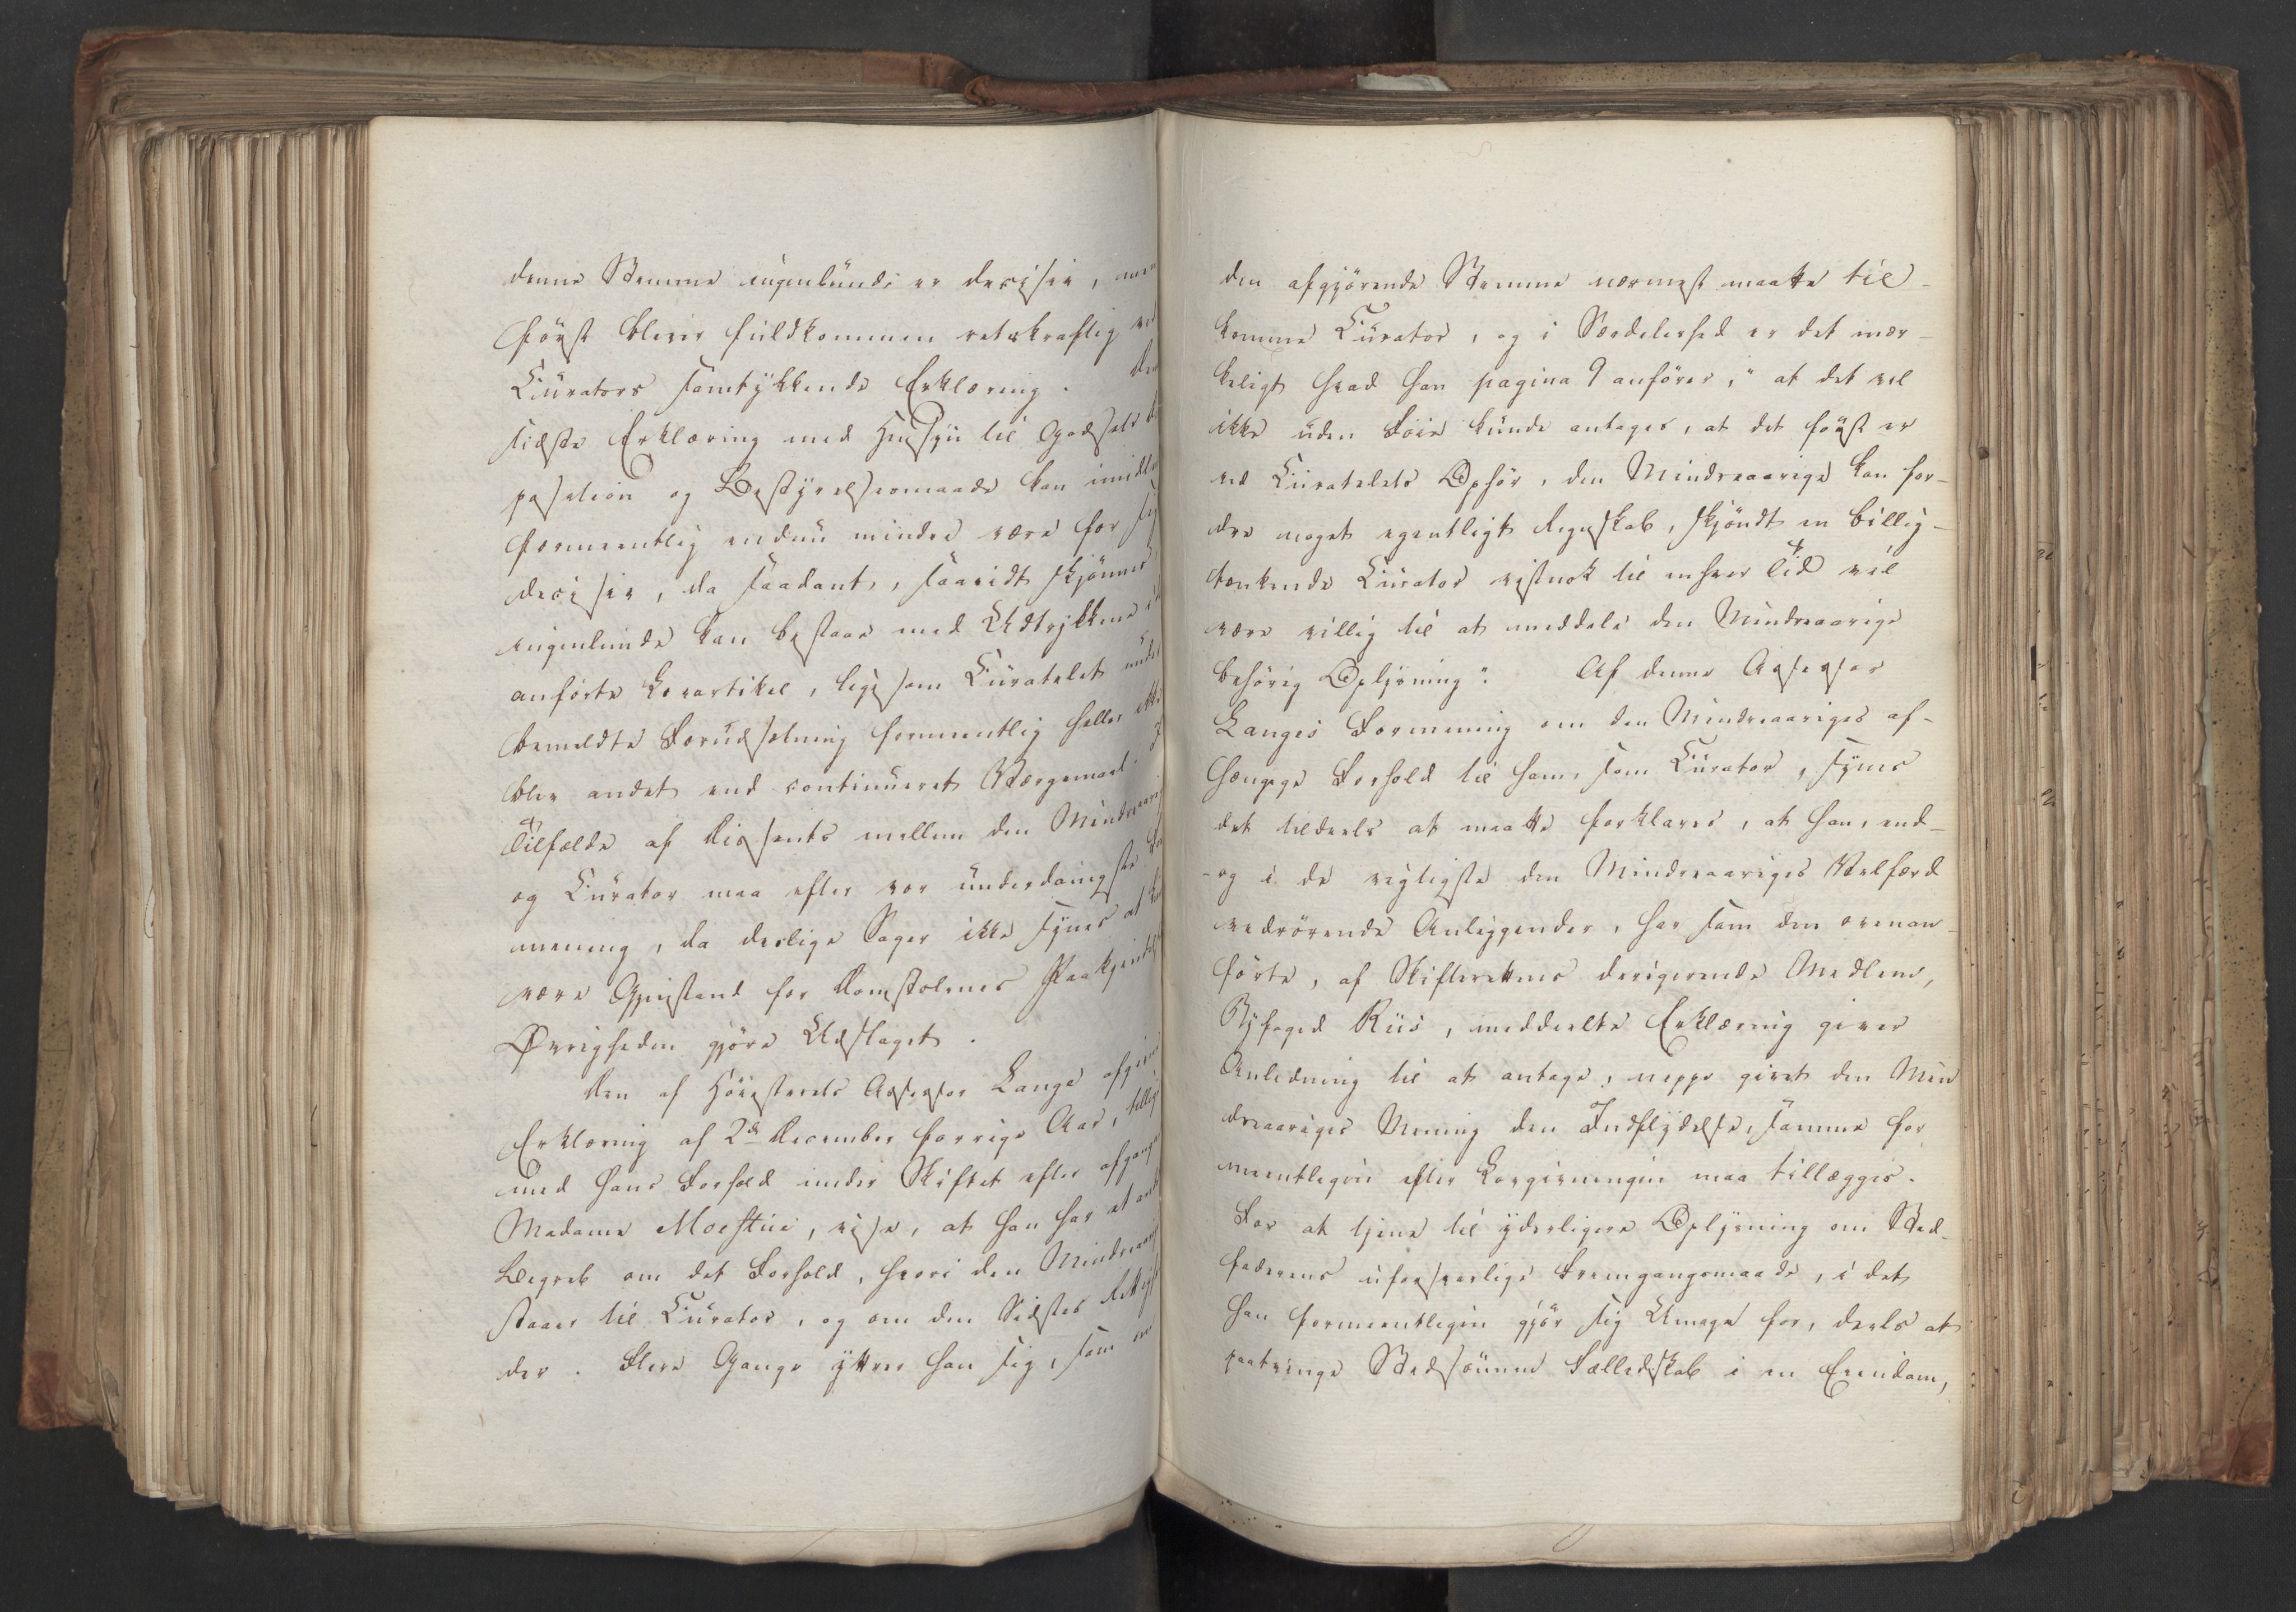 denne Stemme ingenlunde er decisiv, men
først bliver fuldkommen retskraftig ved
Curators samtykkende Erklæring. Den
sidste Erklæring med Hensyn til Godsets
position og Bestyrelsesmaade kan imidler
formeentlig endnu mindre være for sig
decisiv, da saadant, saavidt skjønnes
ingenlunde kan bestaae med Udtrykkene i
anførte Lovartikel, ligesom Curatelet under
bemeldte Forudsætning formeentlig heller ikke
blev andet end continueret Værgemaal. I
Tilfælde af Dissents mellem den Mindreaarige
og Curator maa efter vor underdanigste For
mening, da deslige Sager ikke synes at
være Gjenstand for Domstolenes Paakjendelse
Øvrigheden gjøre Udslaget.
Den af Høiesterets Assessor Lange afgivne
Erklæring af 2de December forrige Aar, tillige
med hans Forhold under Skiftet efter afgangne
Madame Moestue, vise, at han har et andet
Begreb om det Forhold, hvori den Mindreaarige
staaer til Curator, og om den Sidstes Rettighe
der. Flere Gange yttrer han sig, som om
den afgjørende Stemme nærmest maatte til-
komme Curator, og i Særdeleshed er det mær-
keligt hvad han pagina 9 anfører, "at det vel
ikke uden Føie kunde antages, at det først er
ved Curatelets Ophør, den Mindreaarige kan for-
dre noget egentligt Regnskab, skjøndt en billig-
tænkende Curator vistnok til enhver Tid vil
være villig til at meddele den Mindreaarige
behørig Oplysning". Af denne Assessor
Langes Formening om den Mindreaariges af-
hængige Forhold til ham, som Curator, synes
det tildeels at maatte forklares, at han, end-
-og i de vigtigste den Mindreaariges Velfærd
vedrørende Anliggender, har som den ovenan-
førte, af Skifterettens dirigerende Medlem,
Byfoged Riis, meddeelte Erklæring giver
Anledning til at antage, neppe givet den Min
dreaariges Mening den Indflydelse, samme for
meentligen efter Lovgivningen maa tillægges.
For at tjene til yderligere Oplysning om Sted-
faderens uforsvarlige Fremgangsmaade, i det
han formeentligen gjør sig Umage for, deels at
paatvinge Stedsønnen Fælledskab i en Eiendom,